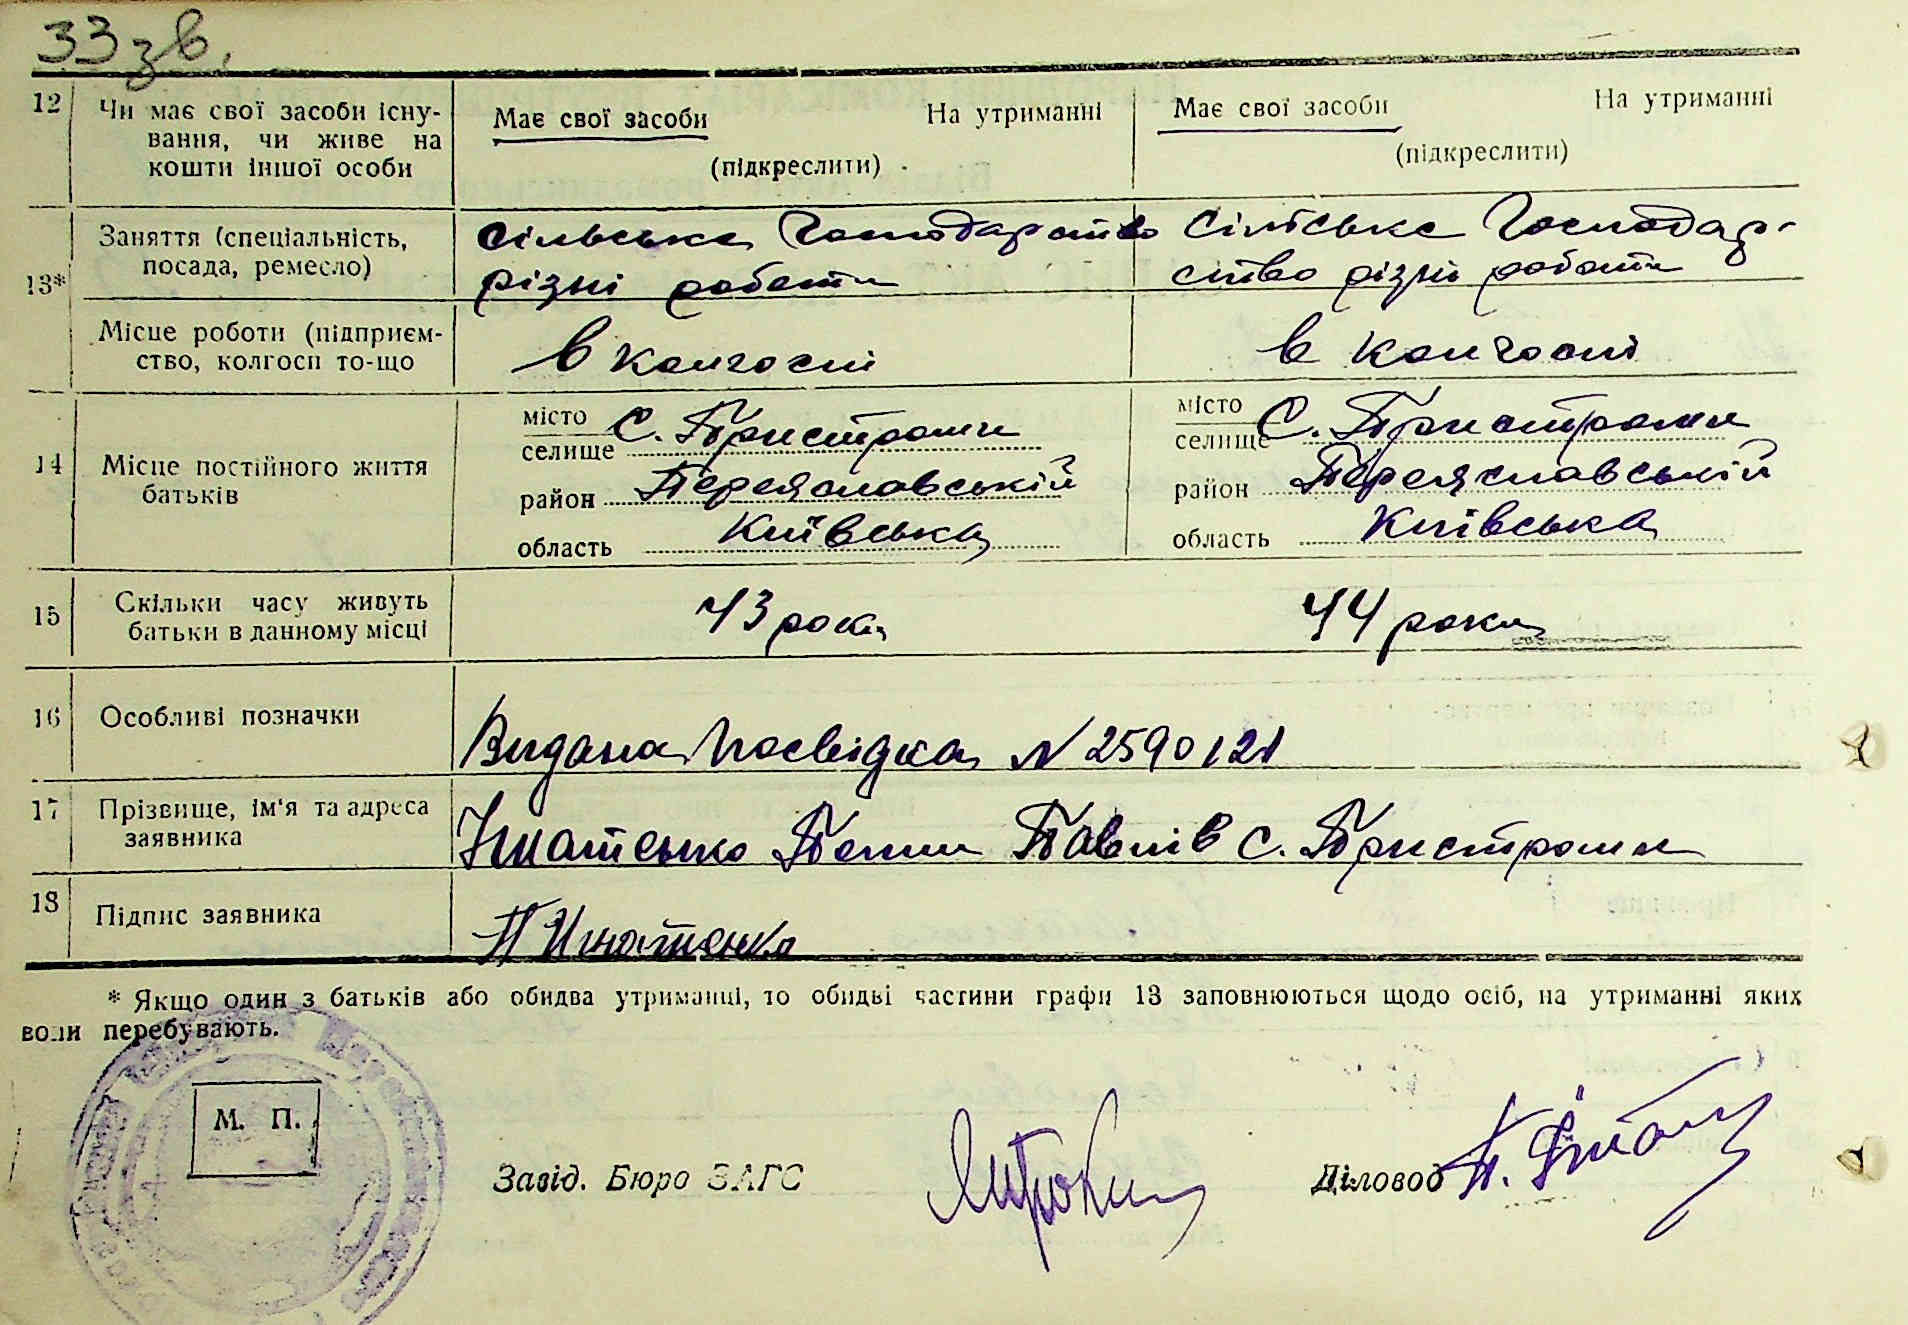 33 зв.
12 Чи має свої засоби існу- Має свої засоби На утриманні Має свої засоби На утриманні
вання, чи живе на (підкреслити) (підкреслити)
кошти іншої особи
13* Заняття (спеціальність, Сільське Господарство Сільське Господар-
посада, ремесло) різні работи ство різні работи
Місце роботи (підприєм- в колгоспі в колгоспі
ство, колгосп то-що
14 Місце постійного життя батьків
місто селище С. Пристроми місто селище С. Пристроми
район Переяславський район Переяславський
область Київська область Київська
15 Скільки часу живуть 43 роки 44 роки
батьки в данному місці
16 Особливі позначки Видана Посвідка N 2590121
17 Прізвище, ім'я та адреса Павлів с. Пристроми
заявника
18 Підпис заявника П Игнатенко
* Якщо один з батьків або обидва утриманці, то обидві частини графи 13 заповнюються щодо осіб, на утриманні яких
вони перебувають.
М. П.
Завід. Бюро ЗАГС Діловод